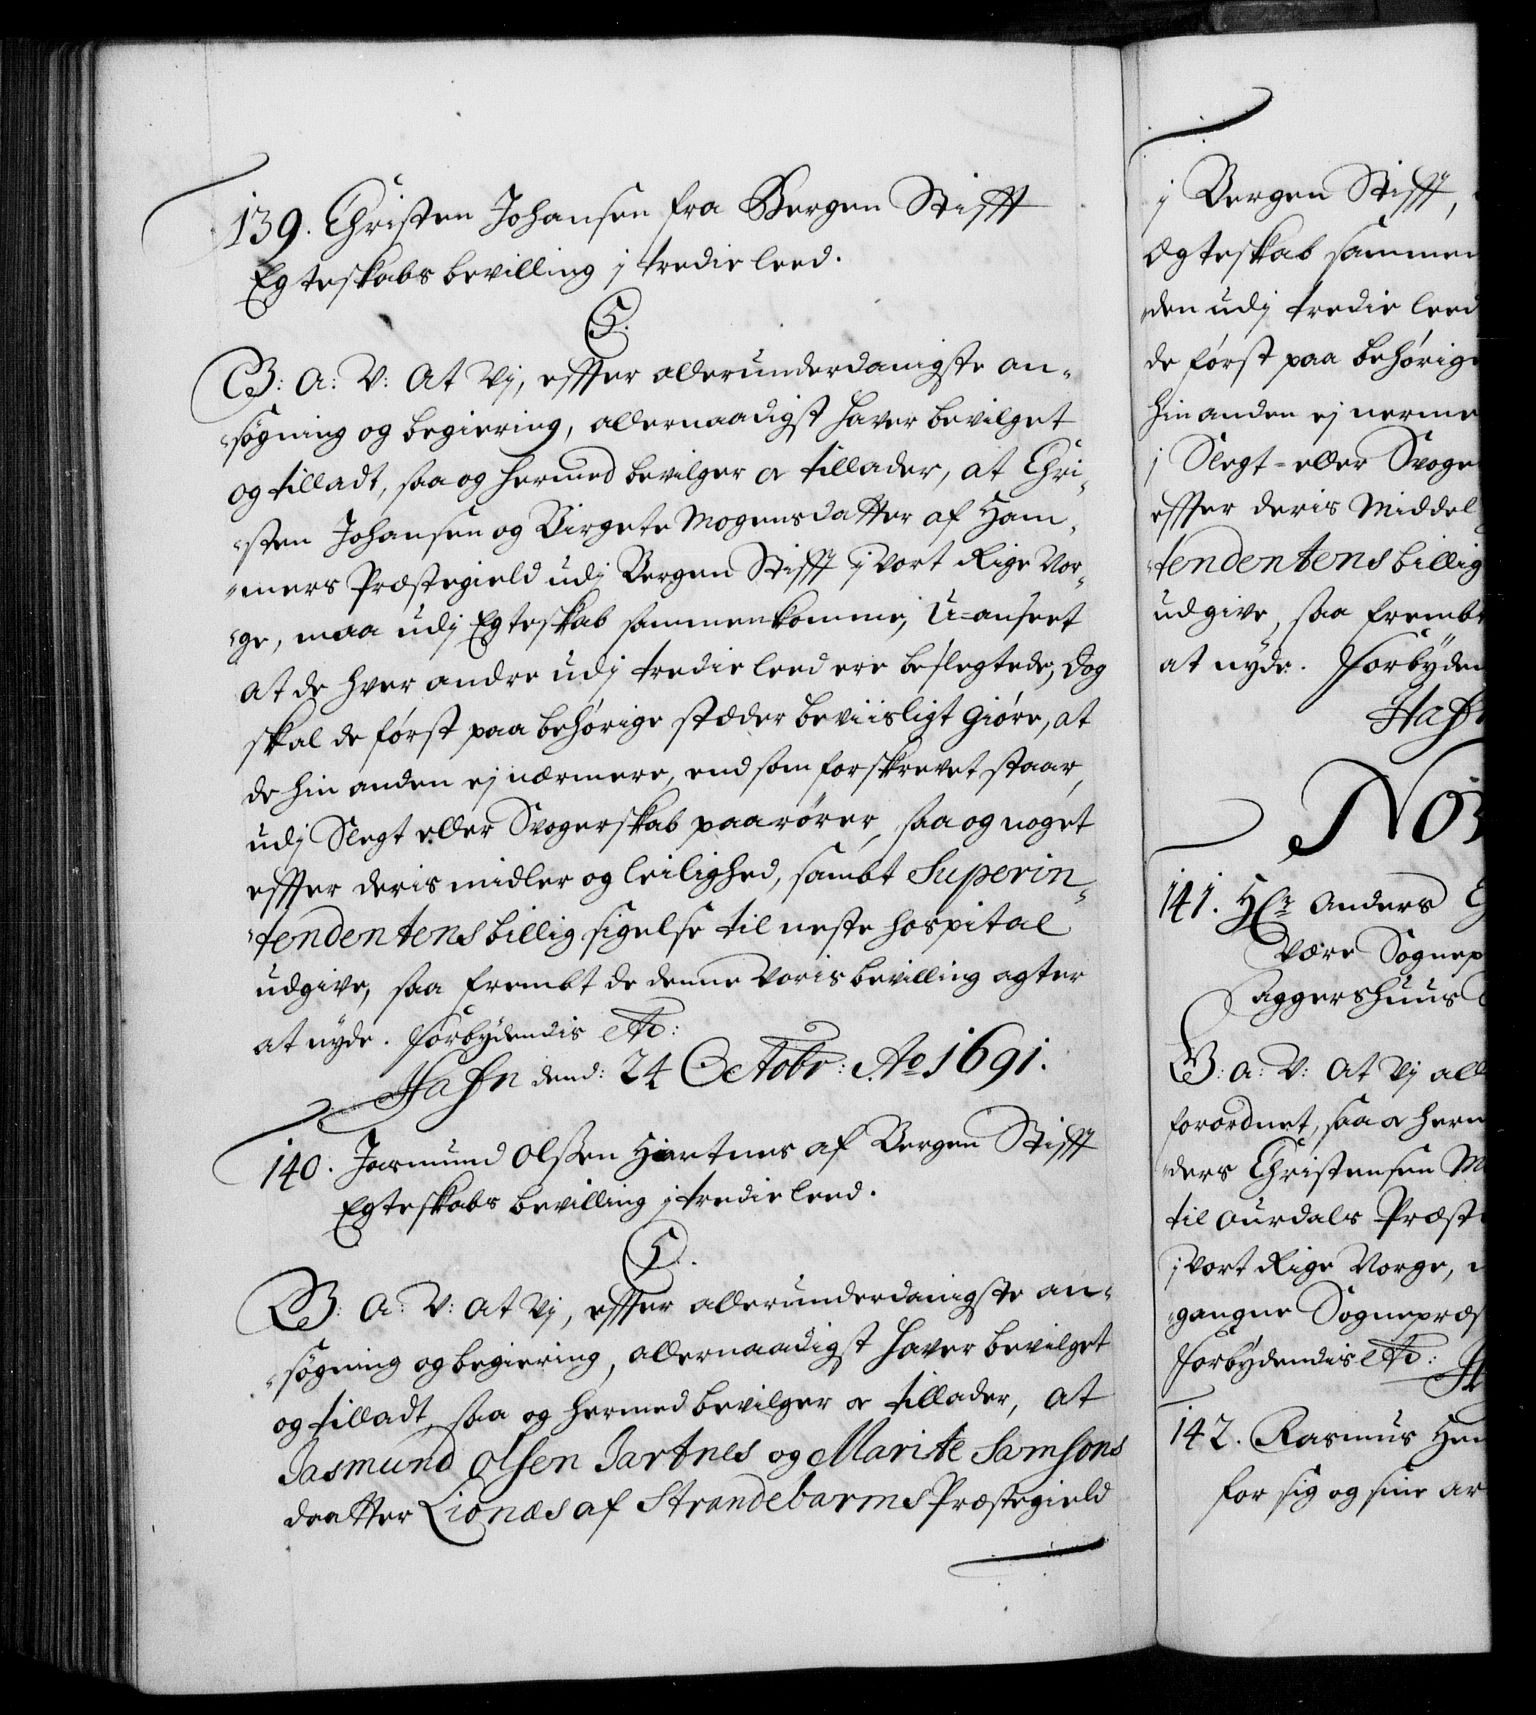 139. Christen Johansen fra Bergen Stifft
Egteskabs bevilling j tredie leed.
C5.
G: A: V: At Vj, effter allerunderdanigste an-
søgning og begiering, allernaadigst haver bevilget
og tilladt, saa og hermed bevilger og tillader, at Chri-
sten Johansen og Birgete Mogensdatter af Ham-
mers Præstegield udj Bergen Stifft j vort Rige Nor-
ge, maa udj Egteskab sammenkomme, U-anseet
at de hver andre udj tredie leed ere beslegtede, Dog
skal de først paa behørige stæder beviisligt giøre, at
de hin anden ej nærmere, end som forskrevet staar,
udj Slegt eller Svogerskab paarører, saa og noget
effter deris midler og leilighed, sambt Superin-
tendentens billig sigelse til neste hospital
udgive, saa frembt de denne Voris bevilling agter
at nyde. Forbydendis etc:
Hafn dend: 24 Octobr: Ao 1691.
140. Jasmund Olssen Hiartnes af Bergen Stifft
Egteskabs bevilling j tredie leed.
C5.
G: A: V: At Vj, effter allerunderdanigste an-
søgning og begiering, allernaadigst haver bevilget
og tilladt, saa og hermed bevilger og tillader, at
Jasmund Olsen Jartnes og Marite Samsons
daatter Lionæs af Strandebarms Præstegield
j Bergen Stifft,
Egteskab sammen
den udj tredie leed
de først paa behørige
hin anden ej nerme
j Slegt- eller Svoge
effter deris Middel
tendentens billig
udgive, saa frembt
at nyde. Forbyden
Hafn
Nov
141. Hr Anders
være Sognep
Aggershuus
G: A: V: At Vj all
forordnet, saa og herm
ders Christensen M
til Aurdals Præste
j vort Rige Norge,
gangne Sognepræs
Forbydendis etc: H
142. Rasmus Han
for sig og sine ar